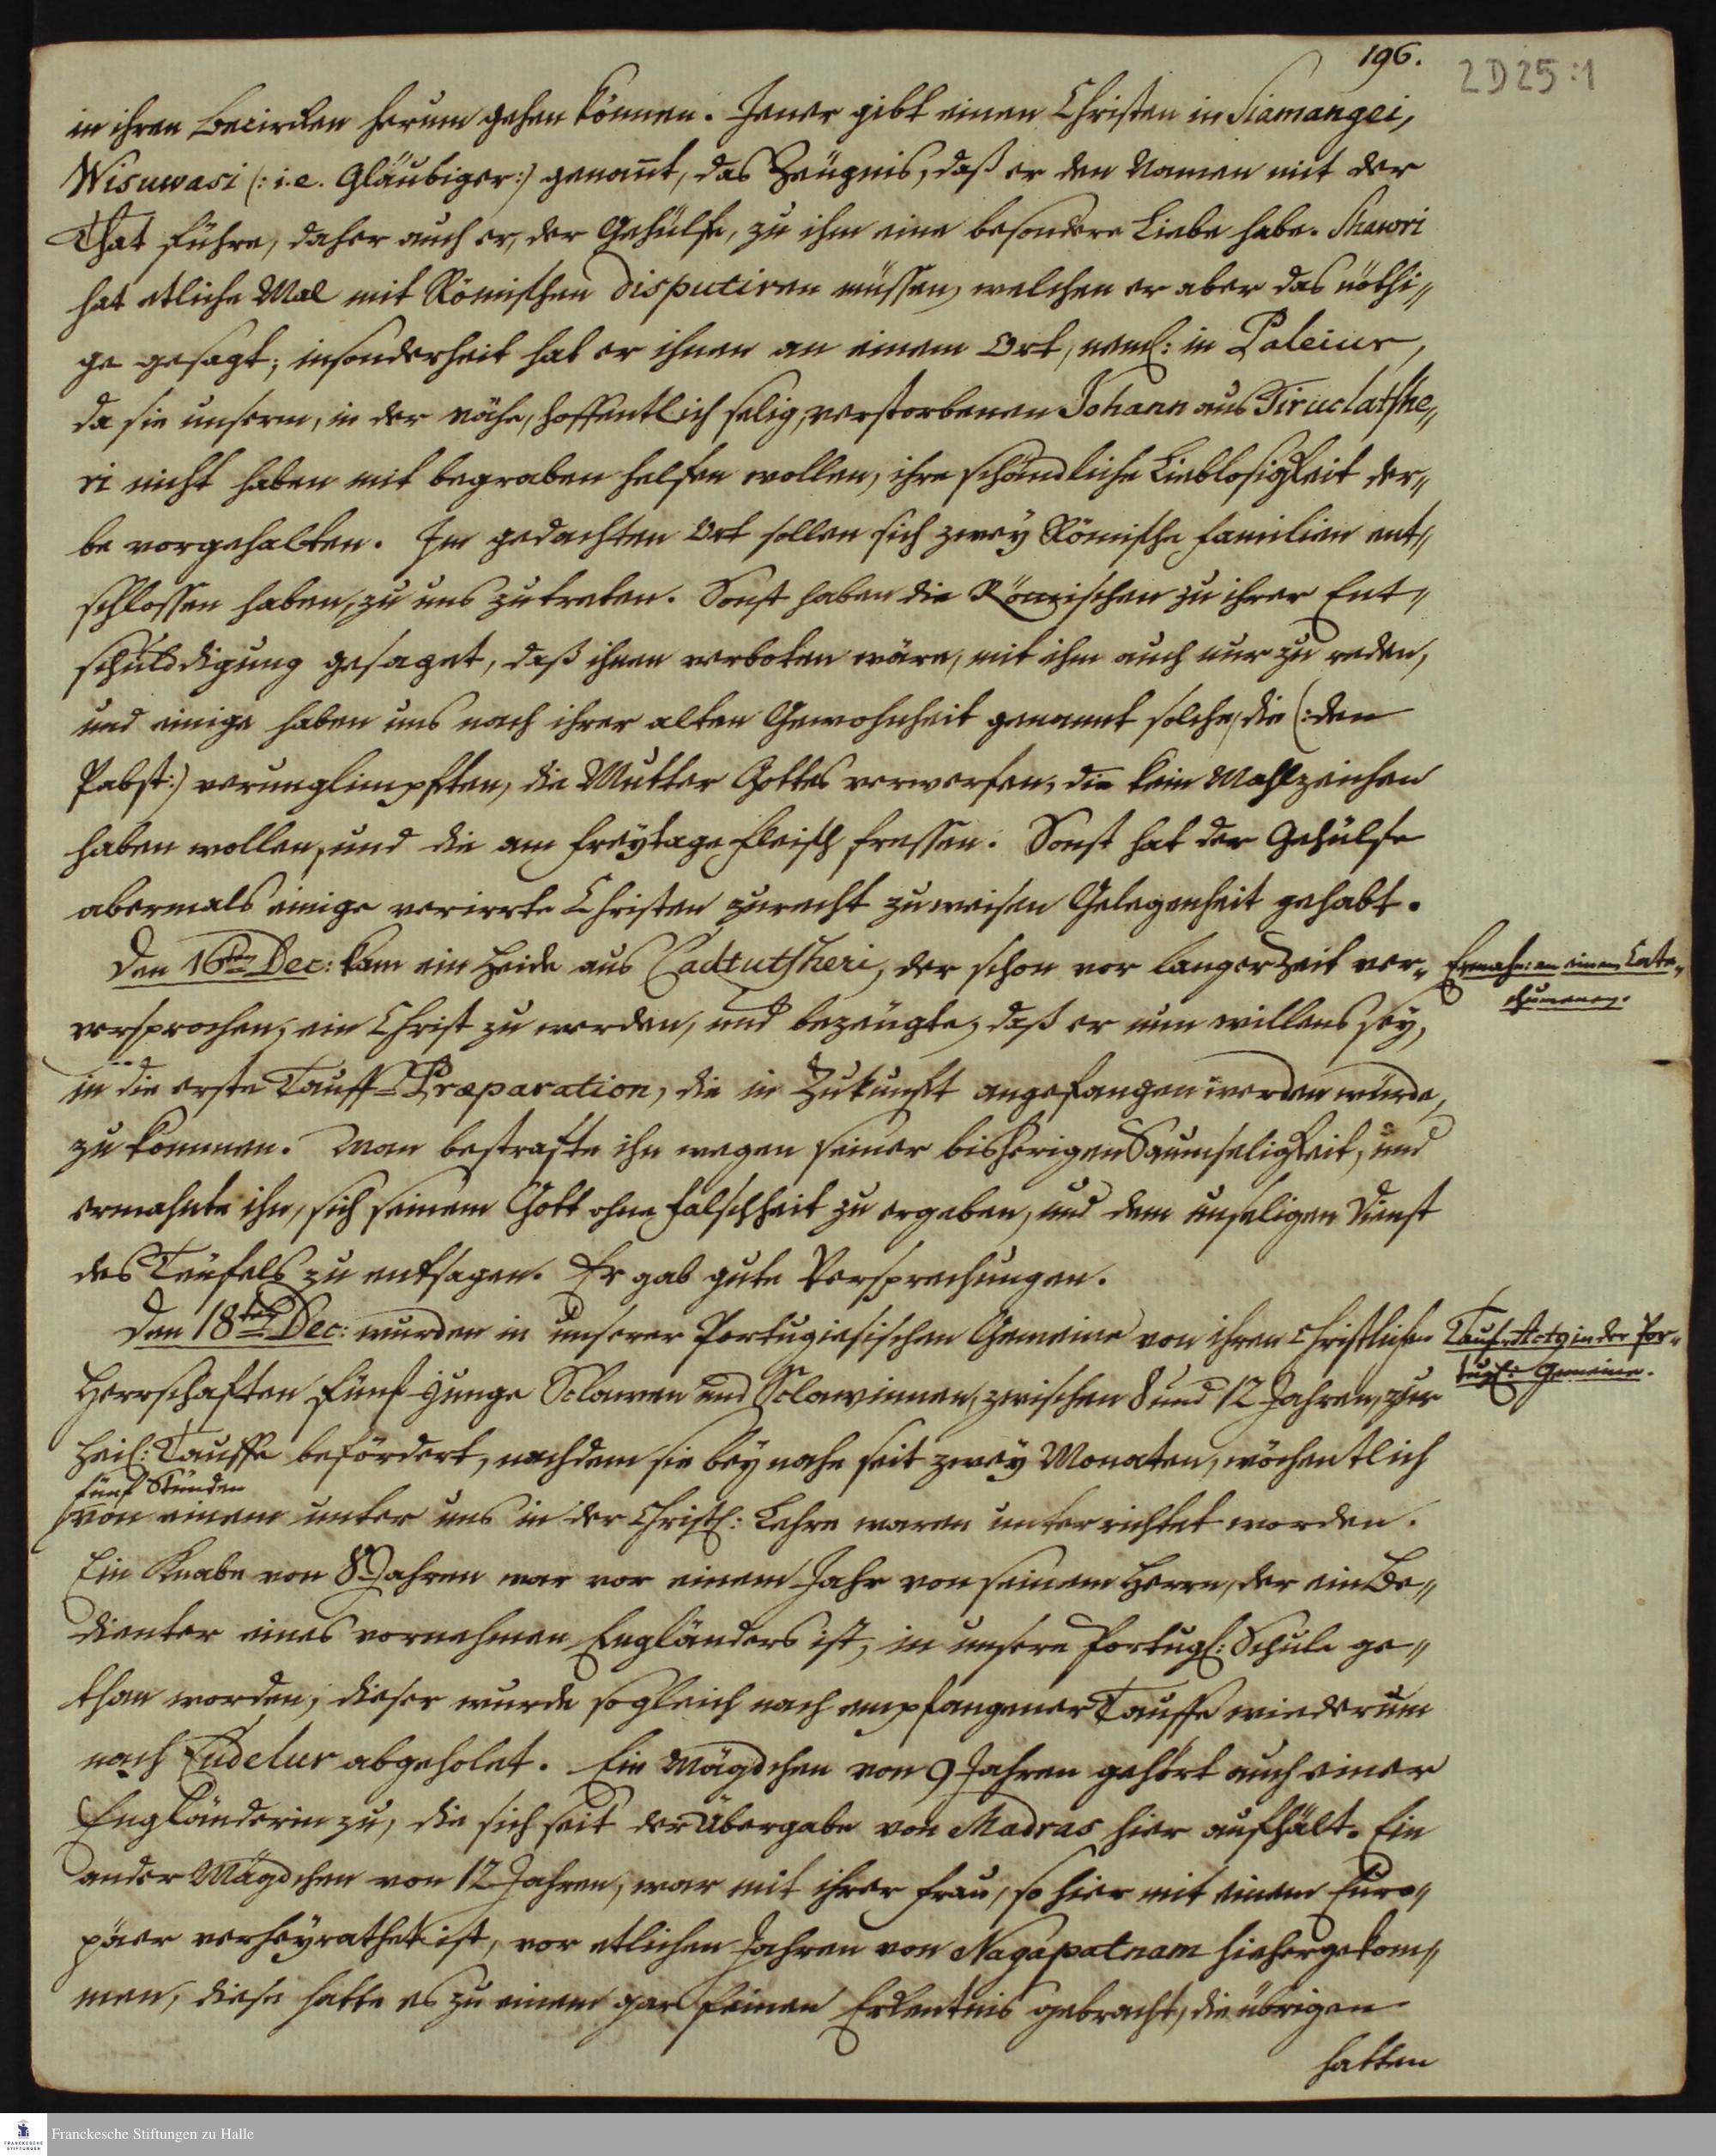 196.
2D25:1
in ihren Becircken herum gehen können. Jener gibt einen Christen in Siamangei,
Wisuwasi (: i.e. Gläubiger:) genant, das Zeügnis, daß er den Namen mit der
That führe, daher auch er, der Gehülfe, zu ihm eine besondere Liebe habe. Shawri
hat etliche Mal mit Römischen disputiren müssen, welchen er aber das nöthi„
ge gesagt; insonderheit hat er ihnen an einem Ort, neml: in Paleiur,
da sie unserm, in der nähe, hoffentlich selig, verstorbenen Johann aus Tiruclatshe„
ri nicht haben mit begraben helfen wollen, ihre schändliche Lieblosigkeit der„
be vorgehalten. Im gedachten Ort sollen sich zwey Römische Familien ent„
schlossen haben, zu uns zu treten. Sonst haben die Römischen zu ihrer Ent„
schulddigung gesaget, daß ihnen verboten wäre, mit ihm auch nur zu reden,
und einige haben uns nach ihrer alten Gewohnheit genannt solche, die (: den
Pabst:) verunglimpften, die Mutter Gottes verwerfen, die kein Mahlzeichen
haben wollen, und die am Freytage Fleisch fressen. Sonst hat der Gehülfe
abermals einige verirrte Christen zurecht zu weisen Gelegenheit gehabt.
Den 16ten Dec: kam ein Heide aus Cadtutsheri, der schon vor langer Zeit ver„
Ermahn: an einen Cate„
chumenen.
versprochen, ein Christ zu werden, und bezeügte, daß er nun willens sey,
in die erste Tauff-Præparation, die in Zukunft angefangen werden würde,
zu kommen. Man bestrafte ihn wegen seiner bisherigen Saumseligkeit, und
ermahnte ihn, sich seinem Gott ohne Falschheit zu ergeben, und dem unseligen Dienst
des Teüfels zu entsagen. Er gab gute Versprechungen.
Den 18ten Dec: wurden in unserer Portugiesischen Gemeine von ihren Christlichen
Tauf-Actg in der Por„
tugl: Gemeine.
Herrschaften fünf junge Sclawen und Sclawinnen, zwischen 8 und 12 Jahren, zur
Heil: Tauffe befördert, nachdem sie beynahe seit zwey Monaten, wöchentlich
fünf Stunden
von einem unter uns in der Christl: Lehre waren unterrichtet worden.
Ein Knabe von 8 Jahren war vor einem Jahr von seinem Herrn, der ein Be„
dienter eines vornehmen Engländers ist, in unsere Portugl: Schule ge„
than worden, dieser wurde sogleich nach empfangener Tauffe wiederum
nach Cudelur abgeholet. Ein Mägdchen von 9 Jahren gehört auch einer
Engländerin zu, die sich seit der Übergabe von Madras hier aufhält. Ein
ander Mägdchen von 12 Jahren, war mit ihrer Frau, so hier mit einem Euro„
päer verheyrathet ist, vor etlichen Jahren von Nagapatnam hieher gekom„
men, diese hatte es zu einem gar feinen Erkentnis gebracht, die übrigen
hatten
Franckesche Stiftungen zu Halle
FRANCKESCHE
STIFTUNGEN